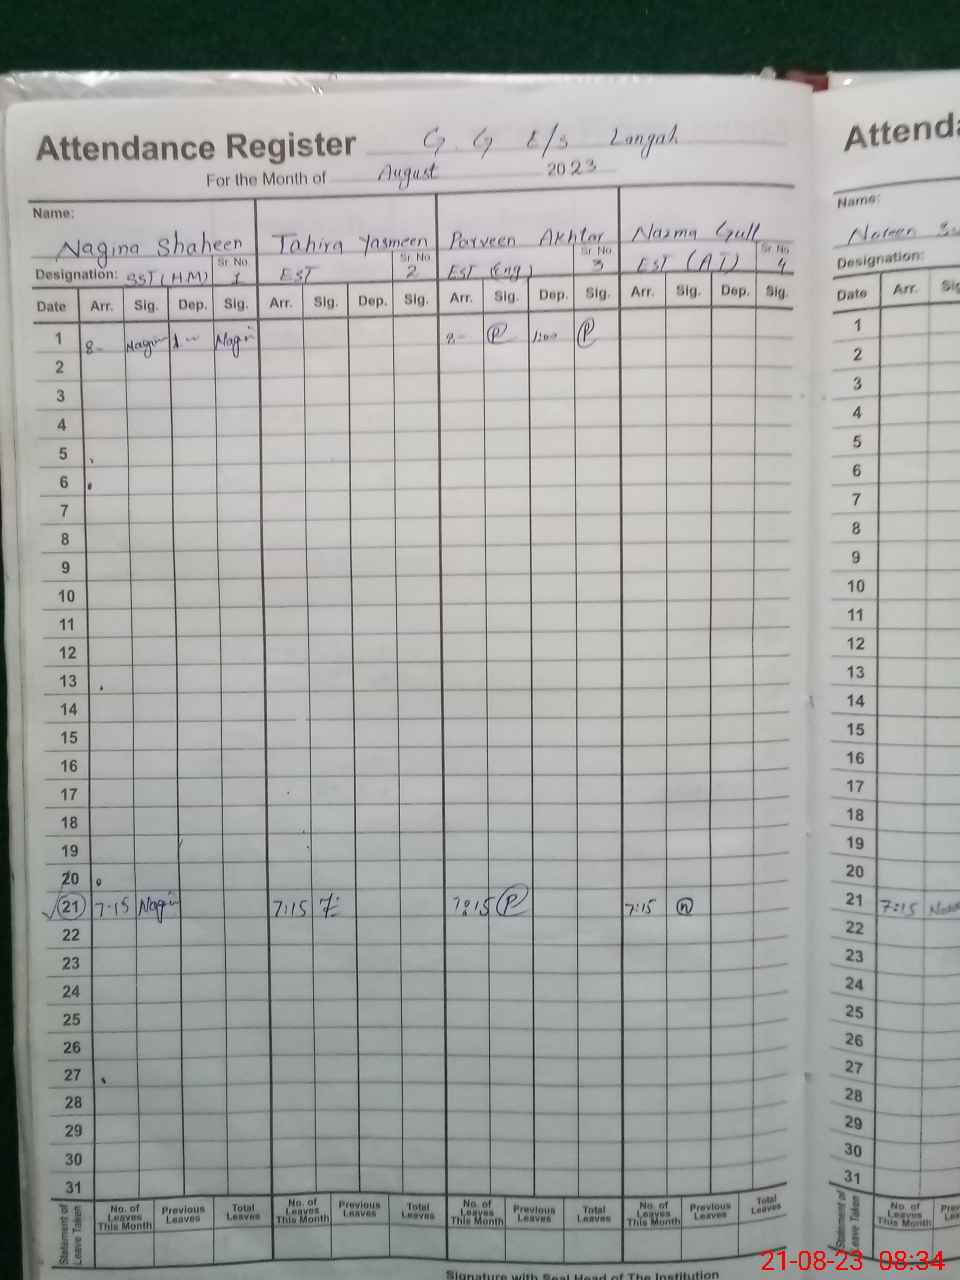 Attendance Register G. G E/S Langah
For the Month of August 2023
Name:
Nagina Shaheen Tahira Yasmeen Parveen Akhtar Nazma Gull
Designation: SST (HM) Sr No. 1 EST Sr No. 2 EST (Eng) Sr No. 3 EST (AT) Sr No. 4
Date Arr. Sig. Dep. Sig. Arr. Sig. Dep. Sig. Arr. Sig. Dep. Sig. Arr. Sig. Dep. Sig.
1 8- Nagi Nagi P 1:00 P
2
3
4
5
6
7
8
9
10
11
12
13
14
15
16
17
18
19
20
21 7-15 Nagi 7:15 7:15 P 7:15 n
22
23
24
25
26
27
28
29
30
31
Statement of Leave Taken
No. of Leaves This Month Previous Leaves Total Leaves No. of Leaves This Month Previous Leaves Total Leaves No. of Leaves This Month Previous Leaves Total Leaves No. of Leaves This Month Previous Leaves Total Leaves
Signature with Seal Head of The Institution
Name:
Designation:
Date Arr.
1
2
3
4
5
6
7
8
9
10
11
12
13
14
15
16
17
18
19
20
21 7:15
22
23
24
25
26
27
28
29
30
31
No. of Leaves This Month
21-08-23 08:34